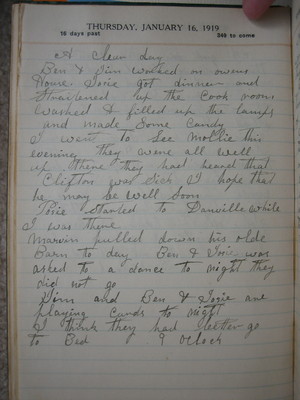 THURSDAY, JANUARY 16, 1919
16 days past 349 to come
A Clear Day
Ben & Jim worked on owens
House. Josie got dinner and
Straitened up the Cook room
washed & filled up the lamps
and made Some Candy
I went to See Mollie this
evening they were all well
up there they had heard that
Clifton was Sick I hope that
he may be well Soon
Josie Started to Danville while
I was there
Marvin pulled down his olde
Barn to day Ben & Josie was
asked to a dance to night they
did not go
Jim and Ben & Josie are
playing Cards to night
I think they had better go
to Bed 9 Oclock